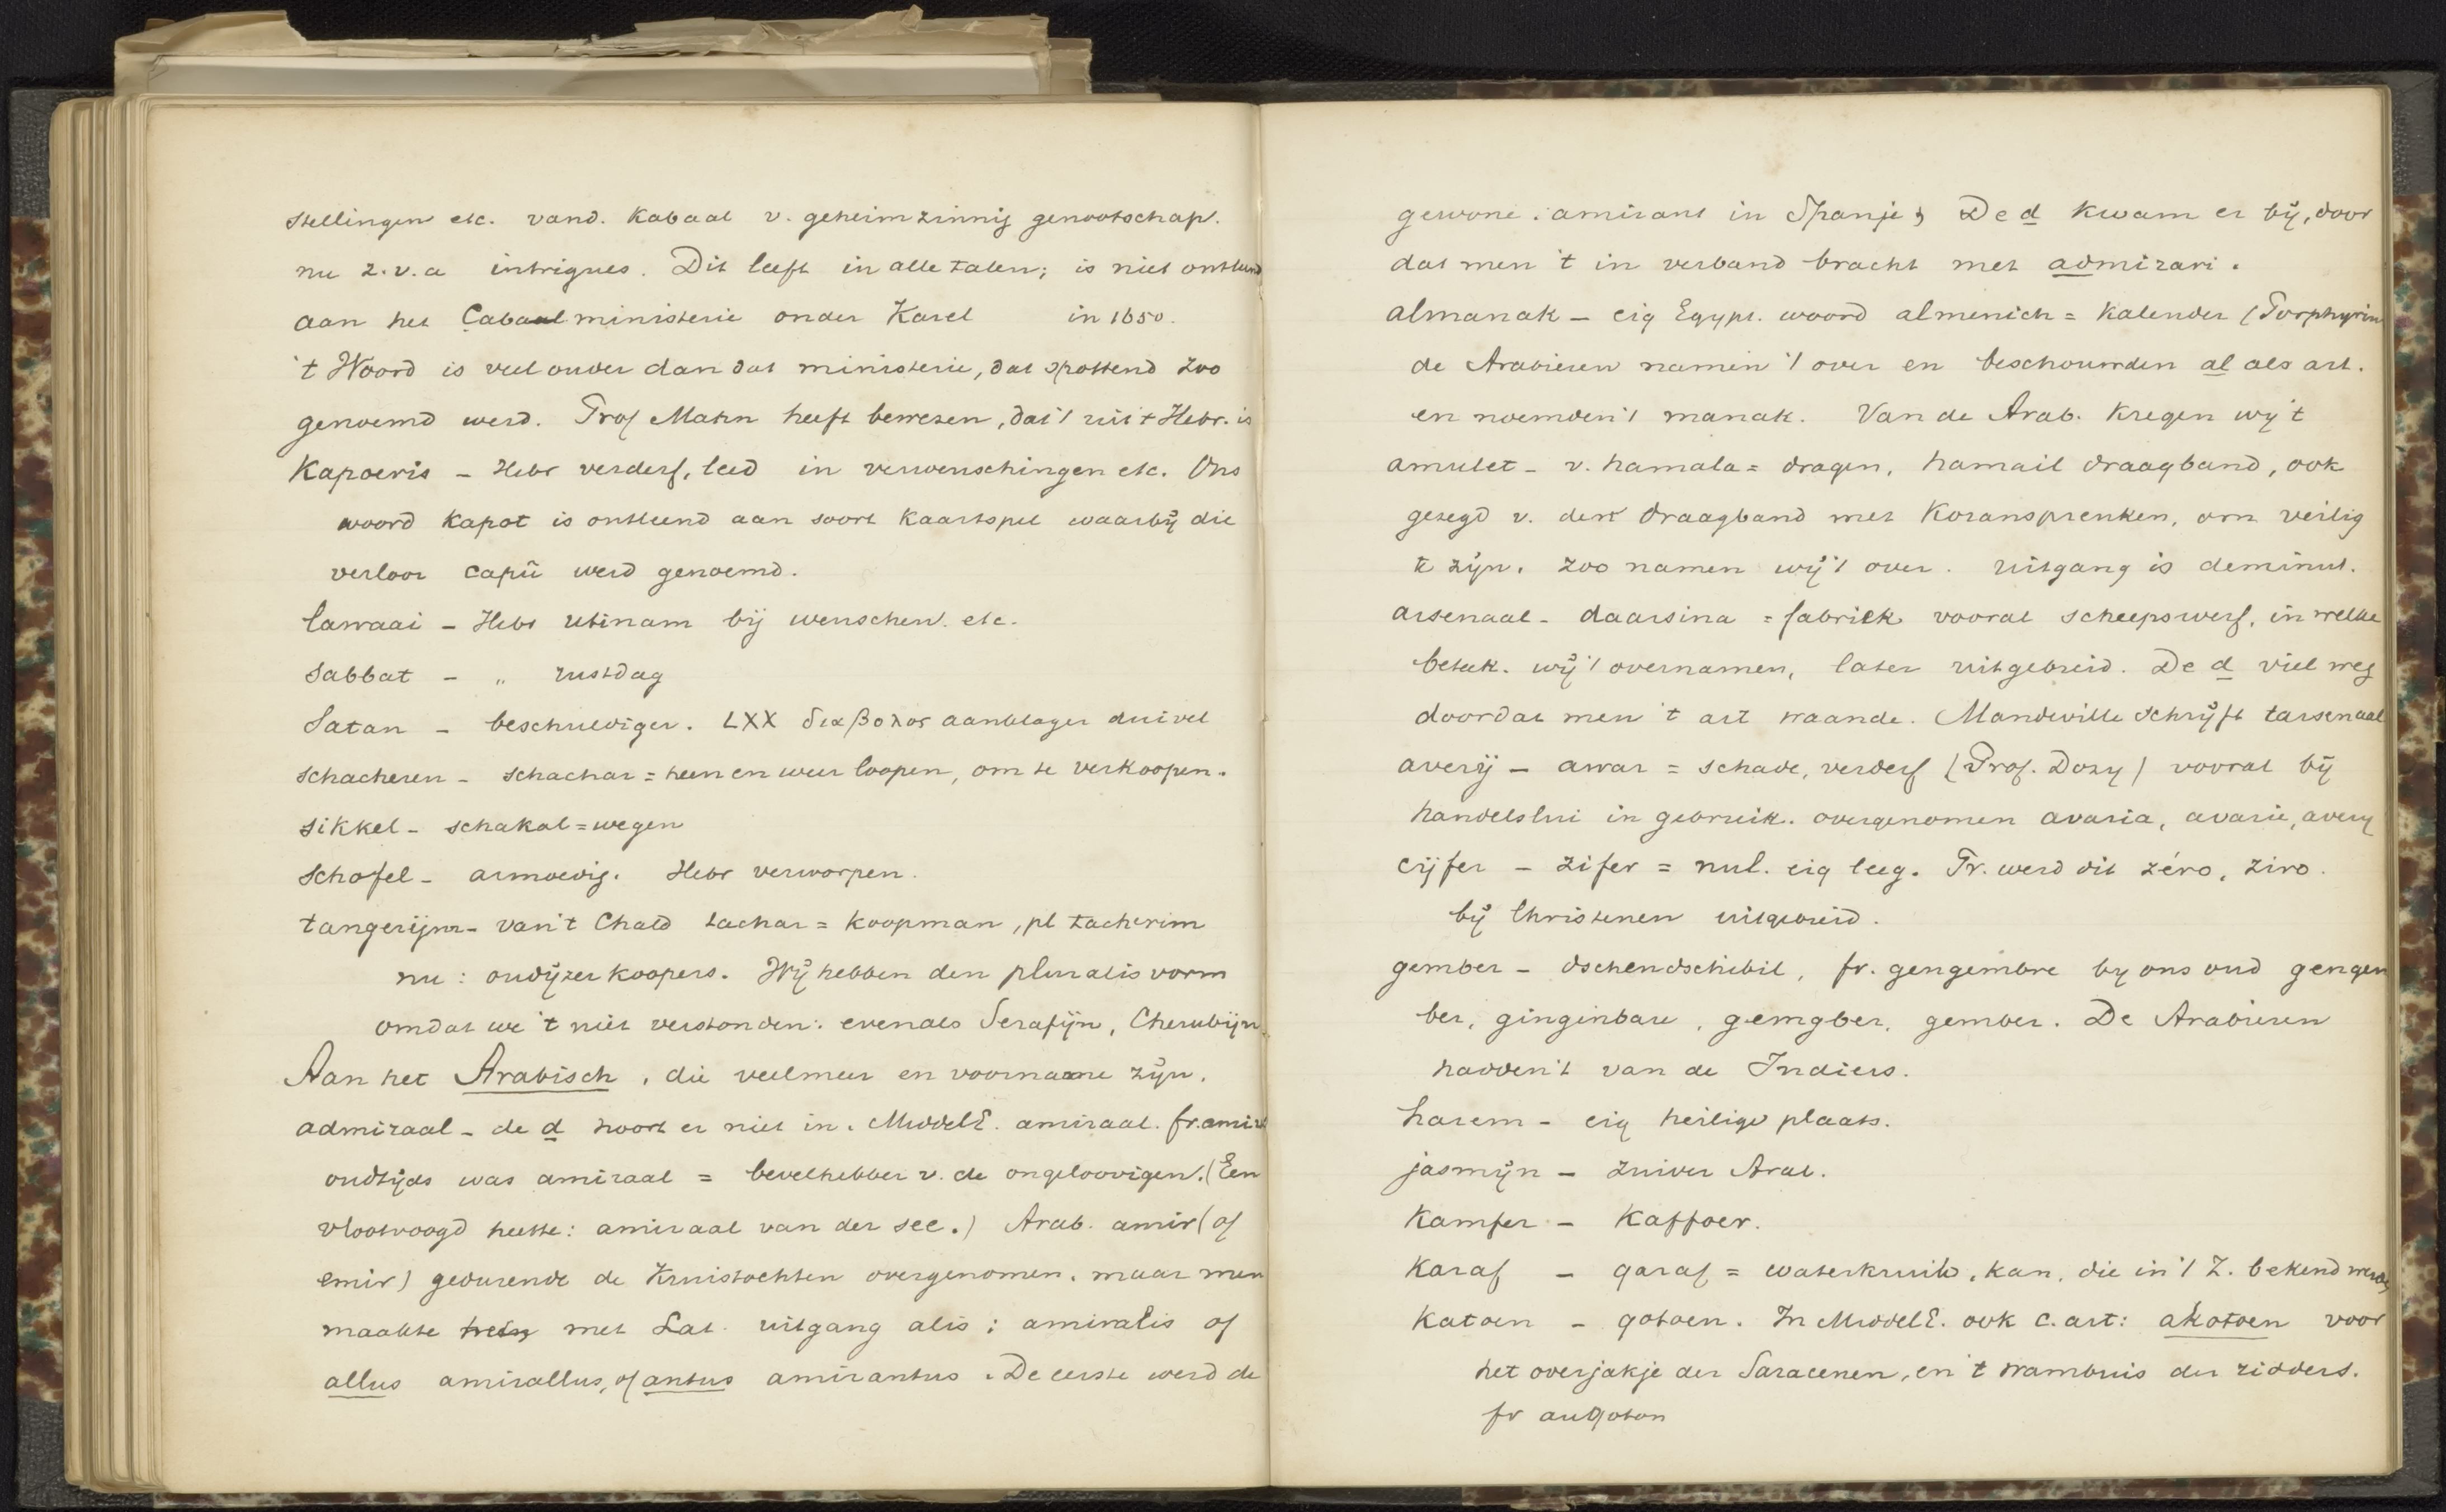 stellingen etc. vand. Kabaal v. geheimzinnig genootschap.
nu z.v.a intrigues. Dit leeft in alle talen; is niet ontleend
aan het Cabaalministerie onder Karel in 1650.
't Woord is veel ouder dan dat ministerie, dat spottend zoo
genoemd werd. Prof Mahn heeft bewezen, dat 't uit t Hebr. is
Kapoeris - Hebr verderf, leed in verwenschingen etc. Ons
woord kapot is ontleend aan soort kaartspel waarbij die
verloor capü werd genoemd.
lawaai - Hebr utinam bij wenschen. etc.
Sabbat - „ rustdag
Satan - beschuldiger. LXX διαβολος aanklager duivel
schacheren - schachar = heen en weer loopen, om te verkoopen.
sikkel - schakal = wegen
schofel - armoedig. Hebr verworpen.
tangerijn - van 't Chald tachar = koopman, pl tacherim
nu: oudijzerkoopers. Wij hebben den pluralisvorm
omdat we 't niet verstonden: evenals Serafijn, Cherubijn.
Aan het Arabisch, die veelmeer en voorname zijn.
admiraal - de d hoort er niet in. MiddelE. amiraal. fr. amir
oudtijds was amiraal = bevelhebber v. de ongeloovigen. (Een
vlootvoogd heette: amiraal van der see.) Arab. amir (of
emir) gedurende de Kruistochten overgenomen. maar men
maakte met Lat. uitgang alis; amiralis of
allus amirallus, of antus amirantus. De eerste werd de
gewone: amirant in Spanje, De d kwam er bij, door
dat men 't in verband bracht met admirari.
almanak - eig Egypt. woord almenich = kalender (Porphyrius
de Arabieren namen 't over en beschouwden al als art.
en noemden 't manak. Van de Arab. kregen wy 't
amulet - v. hamala = dragen, hamail draagband, ook
gezegd v. den draagband met Koranspreuken, om veilig
te zijn. zoo namen wij 't over. uitgang is deminut.
arsenaal - daarsina = fabriek vooral scheepswerf, in welke
beteek. wij 't overnamen, later uitgebreid. De d viel weg
doordat men 't art waande. Mandeville schrijft tarsenaal
averij - awar = schade, verderf (Prof. Dozy) vooral bij
handelslui in gebruik. overgenomen avaria, avarie, avery
cijfer - zifer = nul. eig leeg. Fr. werd dit zéro, ziro.
bij Christenen uitgebreid.
gember - dschendschibil, fr. gengembre by ons oud gengen
ber, ginginbare, gemgber, gember. De Arabieren
hadden 't van de Indiers.
harem - eig heilige plaats.
jasmijn - zuiver Arab.
Kamfer - Kaffoer.
Karaf - qaraf = waterkruik, kan, die in 't Z. bekend werd
Katoen - qotoen. In MiddelE. ook c. art: akotoen voor
het overjakje der Saracenen, en 't wambuis der ridders.
fr auqoton